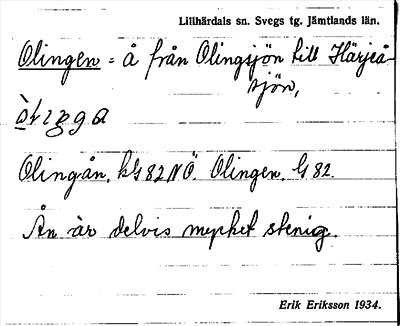 Lillhärdals sn. Svegs tg. Jämtlands län.
Olingen = å från Olingsjön till Härjeå-
sjön,
Olingån, kG 82 NÖ. Olingen. G 82.
Ån är delvis mycket stenig.
Erik Eriksson 1934.